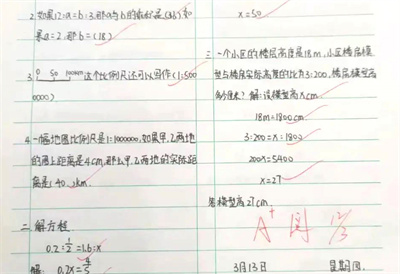 2.如果12:a=b:3,那a与b的乘积是(36)如
果a=2,那b=(18)
3. 0 50 100km 这个比例尺还可以写作(1:500
0000)
4.一幅地图比例尺是1:1000000,如果甲,乙两地
的图上距离是4cm,那么甲,乙两地的实际距
离是(40)km.
二.解方程.
0.2:1/2=1.6:x
解: 0.2x=4/5
x=50
三.一个小区的楼层高度是18m,小区楼层模
型与楼层实际高度的比为3:200,楼层模型高
多少厘米? 解:设模型高xcm
18m=1800cm
3:200=x:1800
200x=5400
x=27
答模型高27cm.
A+ 周
3月13日 星期四.